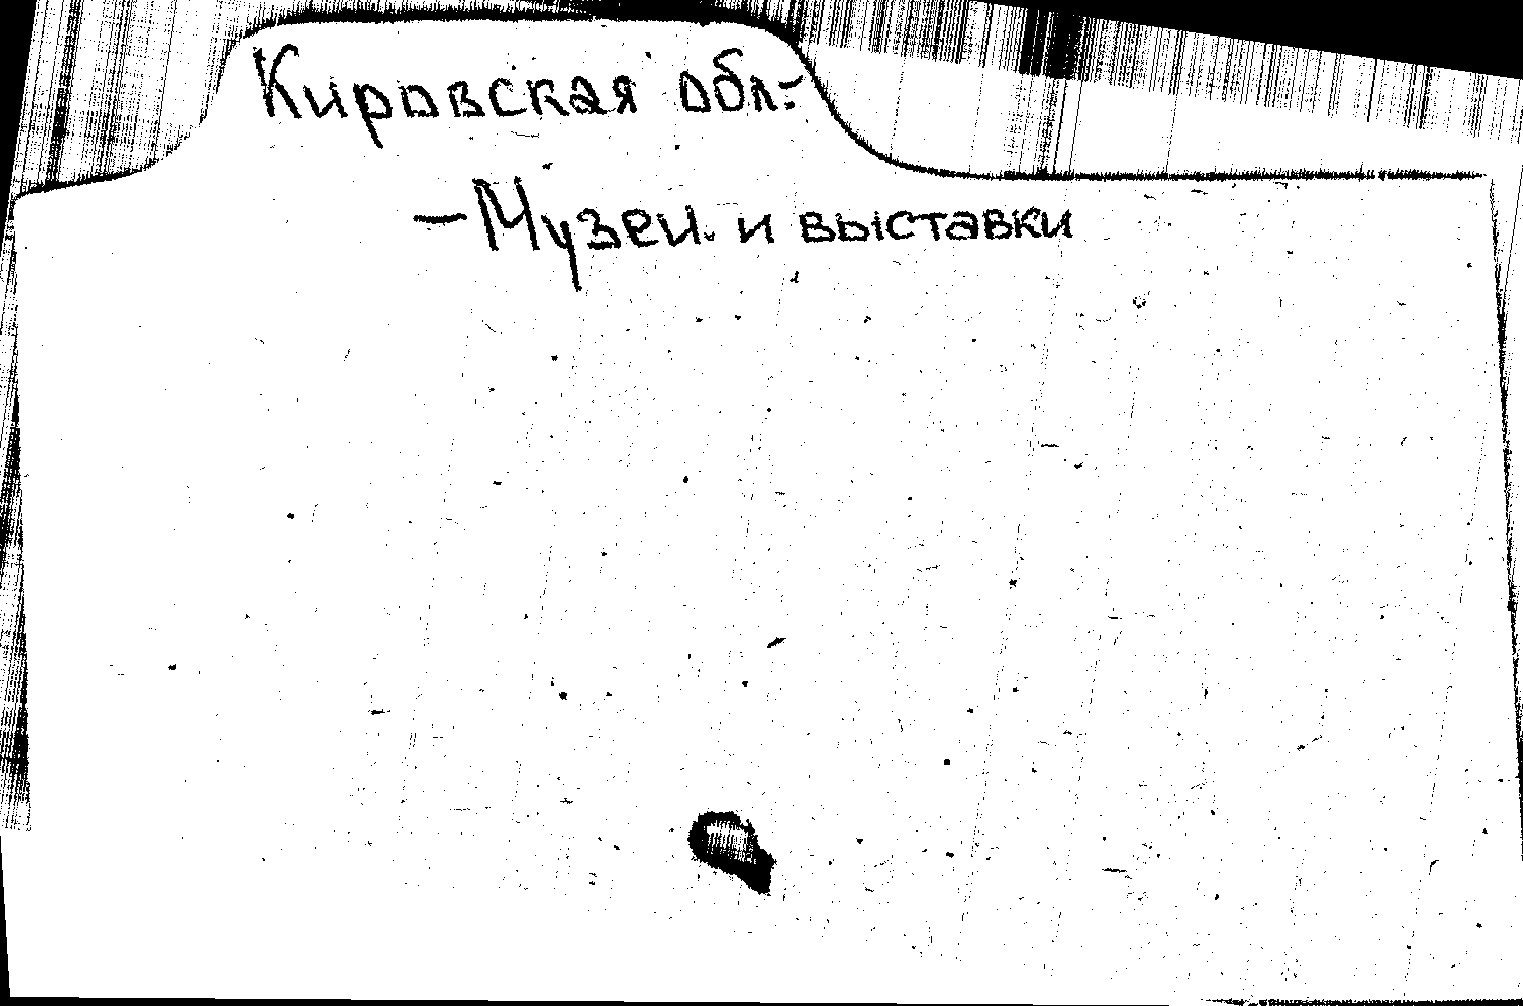 Кировская обл.-
- Музеи и выставки